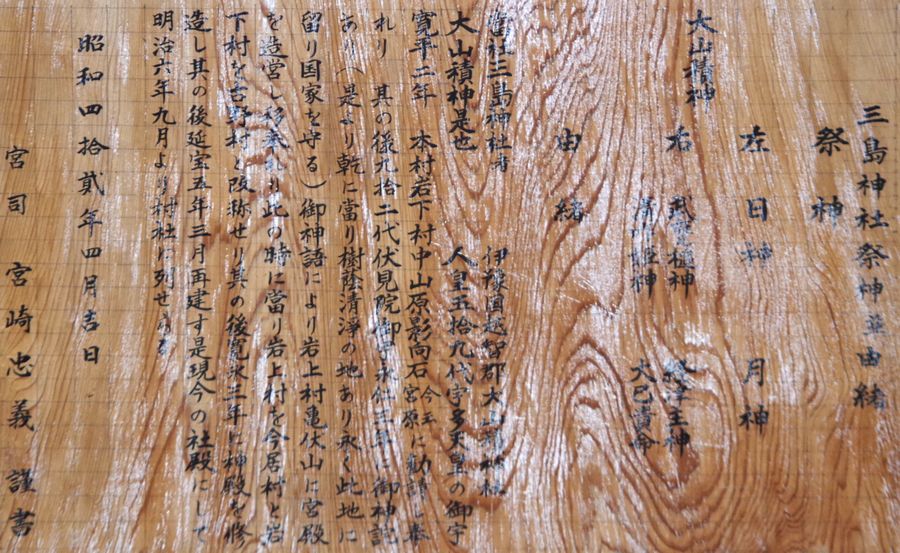 三島神社祭神並由緒
祭神
左 日神 月神
大山積神
右 武甕槌神 経津主神
高靇姫神 大己貴命
由緒
當社三島神社者 伊豫国越智郡大山祇神社
大山積神是也 人皇五拾九代宇多天皇の御宇
寛平二年 本村岩下村中山原影向石今宮主原に勧請し奉
れり 其の後九拾二代伏見院御宇永仁三年に御神託
あり（是より乾に當り樹蔭清浄の地あり永く此地に
留り国家を守る）御神語により岩上村亀伏山に宮殿
を造営し移奉れり此の時に當り岩上村を今居村と岩
下村を吉野村と改称せり其の後寛永三年に神殿を修
造し其の後延宝五年三月再建す是現今の社殿にして
明治六年九月より村社に列せらる
昭和四拾貳年四月吉日
宮司 宮崎忠義 謹書